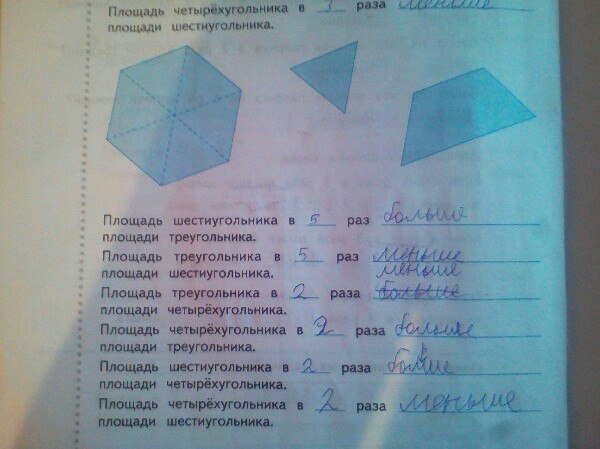 Площадь четырёхугольника в 3 раза меньше
площади шестиугольника.
Площадь шестиугольника в 5 раз больше
площади треугольника.
Площадь треугольника в 5 раз меньше
площади шестиугольника. меньше
Площадь треугольника в 2 раза больше
площади четырёхугольника.
Площадь четырёхугольника в 2 раза больше
площади треугольника.
Площадь шестиугольника в 2 раза больше
площади четырёхугольника.
Площадь четырёхугольника в 2 раза меньше
площади шестиугольника.